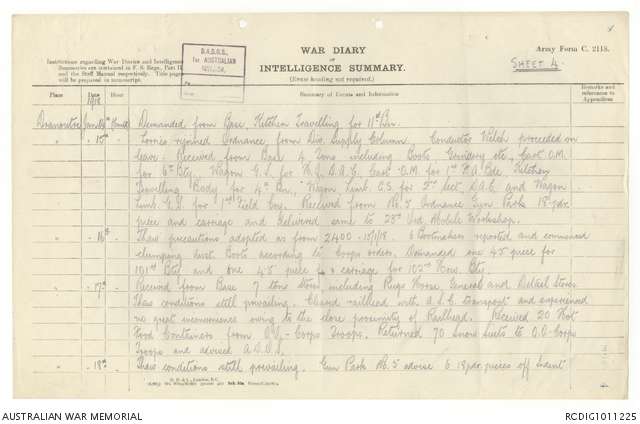 WAR DIARY
or
INTELLIGENCE SUMMARY.
(Erase heading not required.)
Army Form C. 2118.
SHEET 4.
Instructions regarding War Diaries and Intelligence
Summaries are contained in F. S. Regs., Part II
and the Staff Manual respectively. Title pages
will be prepared in manuscript.
D.A.D.O.S.,
1st AUSTRALIAN
Place
Date
Hour
Summary of Events and Information
Remarks and
references to
Appendices
1918
Demanded from Base, Kitchen Travelling for 11th Bn.
" 15th Lorries rejoined Ordnance from Div. Supply Column. Conductor Welch proceeded on
leave. Received from Base 4 Tons including Boots, Grindery etc, Cart O.M.
for 6th Bty. Wagon G.S. for H.Q. D.A.C. Cart O.M. for 1st F.A. Bde. Kitchen
Travelling Body for 4th Bn. Wagon Limb. G.S. for 2nd Sect. D.A.C. and Wagon
Limb. G.S. for 1st Field Coy. Received from No. 5 Ordnance Gun Park 18-pdr.
piece and carriage and delivered same to Mobile Workshop.
" 16th Thaw precautions adopted as from 2400 - 15/1/18. 6 Bootmakers reported and commenced
clumping Boots according to Corps orders. Demanded one 4.5 piece for
101st Bty and one 4.5 piece & carriage for 102nd How. Bty.
" 17th Received from Base 7 tons Stores including Rugs Horse, General and Detail Stores.
Thaw conditions still prevailing. Cleared railhead with A.S.C. transport and experienced
no great inconvenience owing to the close proximity of Railhead. Received 20 Hot
Food Containers from O.O. Corps Troops. Returned 70 Snow Suits to O.O. Corps
Troops and advised A.D.O.S.
" 18th Thaw conditions still prevailing. Gun Park No. 5 advise 6 18pdr. pieces off Indent
AUSTRALIAN WAR MEMORIAL
RCDIG1011225